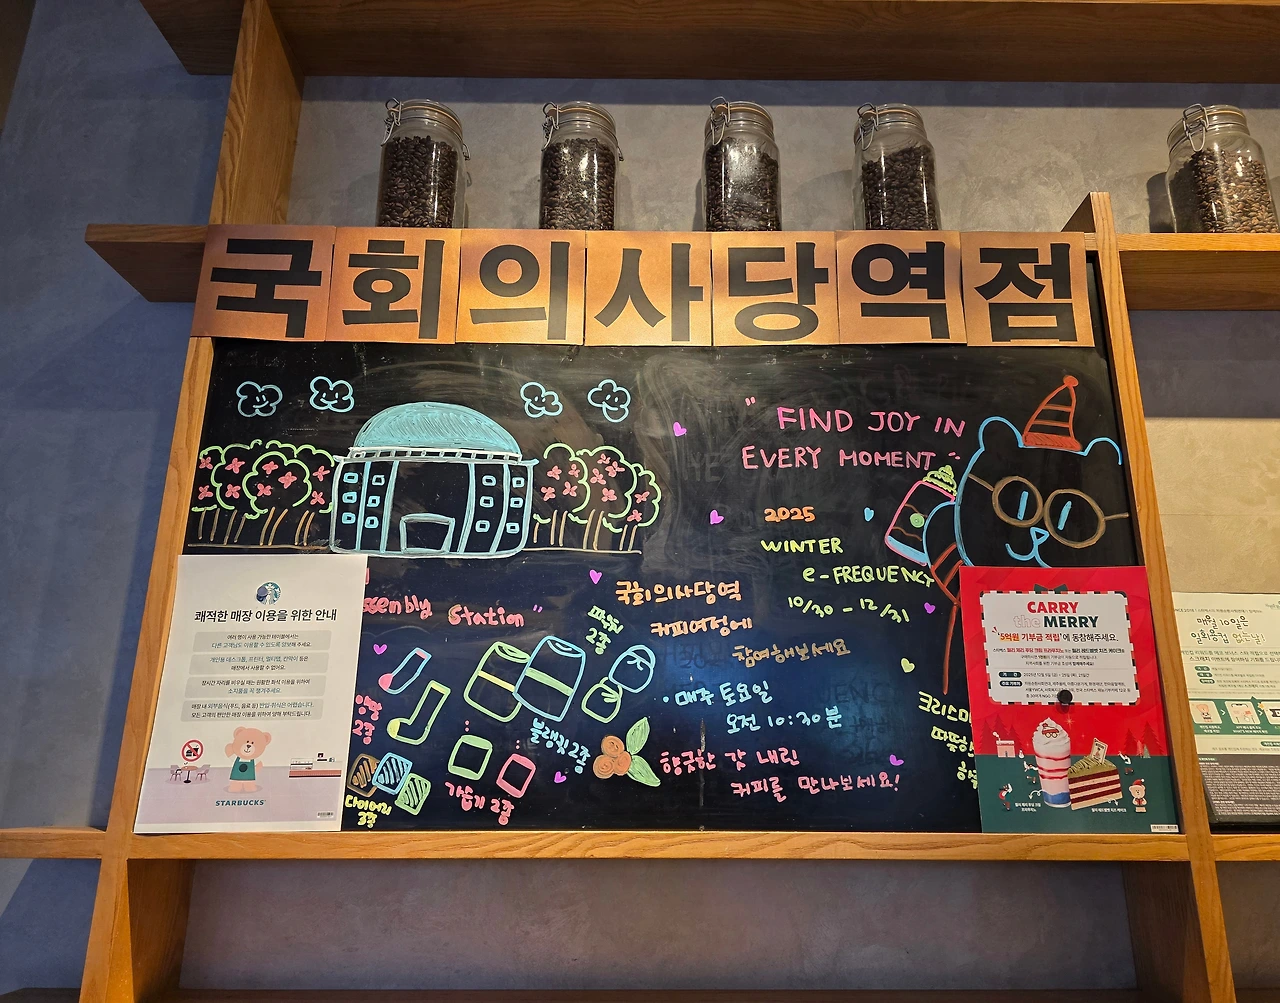 국회의사당역점
" FIND JOY IN
EVERY MOMENT "
2025
WINTER
e-FREQUENCY
10/30 - 12/31
ssembly Station "
국회의사당역
커피여정에
참여해보세요
· 매주 토요일
오전 10:30분
향긋한 갓 내린
커피를 만나보세요!
파우치
2종
양말
2종
블랭킷 2종
다이어리
3종
가습기 2종
크리스마
따뜻한
쾌적한 매장 이용을 위한 안내
여러 명이 사용 가능한 테이블에서는
다른 고객도 이용할 수 있도록 양보해 주세요.
개인용 데스크톱, 프린터, 멀티탭, 칸막이 등은
매장에서 사용할 수 없어요.
장시간 자리를 비우실 때는 원활한 좌석 이용을 위하여
소지품을 꼭 챙겨주세요
매장 내 외부음식(푸드, 음료 등) 반입·취식은 어렵습니다.
모든 고객의 편안한 매장 이용을 위하여 양해 부탁드립니다.
STARBUCKS
CARRY
the MERRY
'5억원 기부금 적립'에 동참해주세요.
매월 10일은
일회용컵 없는 날!